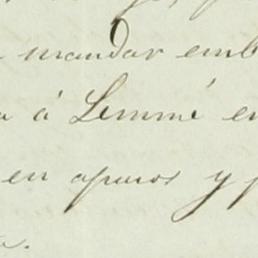 mandar emb
á Lemmé en
en apuros y p